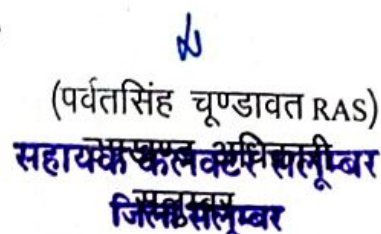 (पर्वतसिंह चूण्डावत RAS)
उपखण्ड अधिकारी
सहायक कलक्टर सलूम्बर
सलूम्बर
जिला सलूम्बर